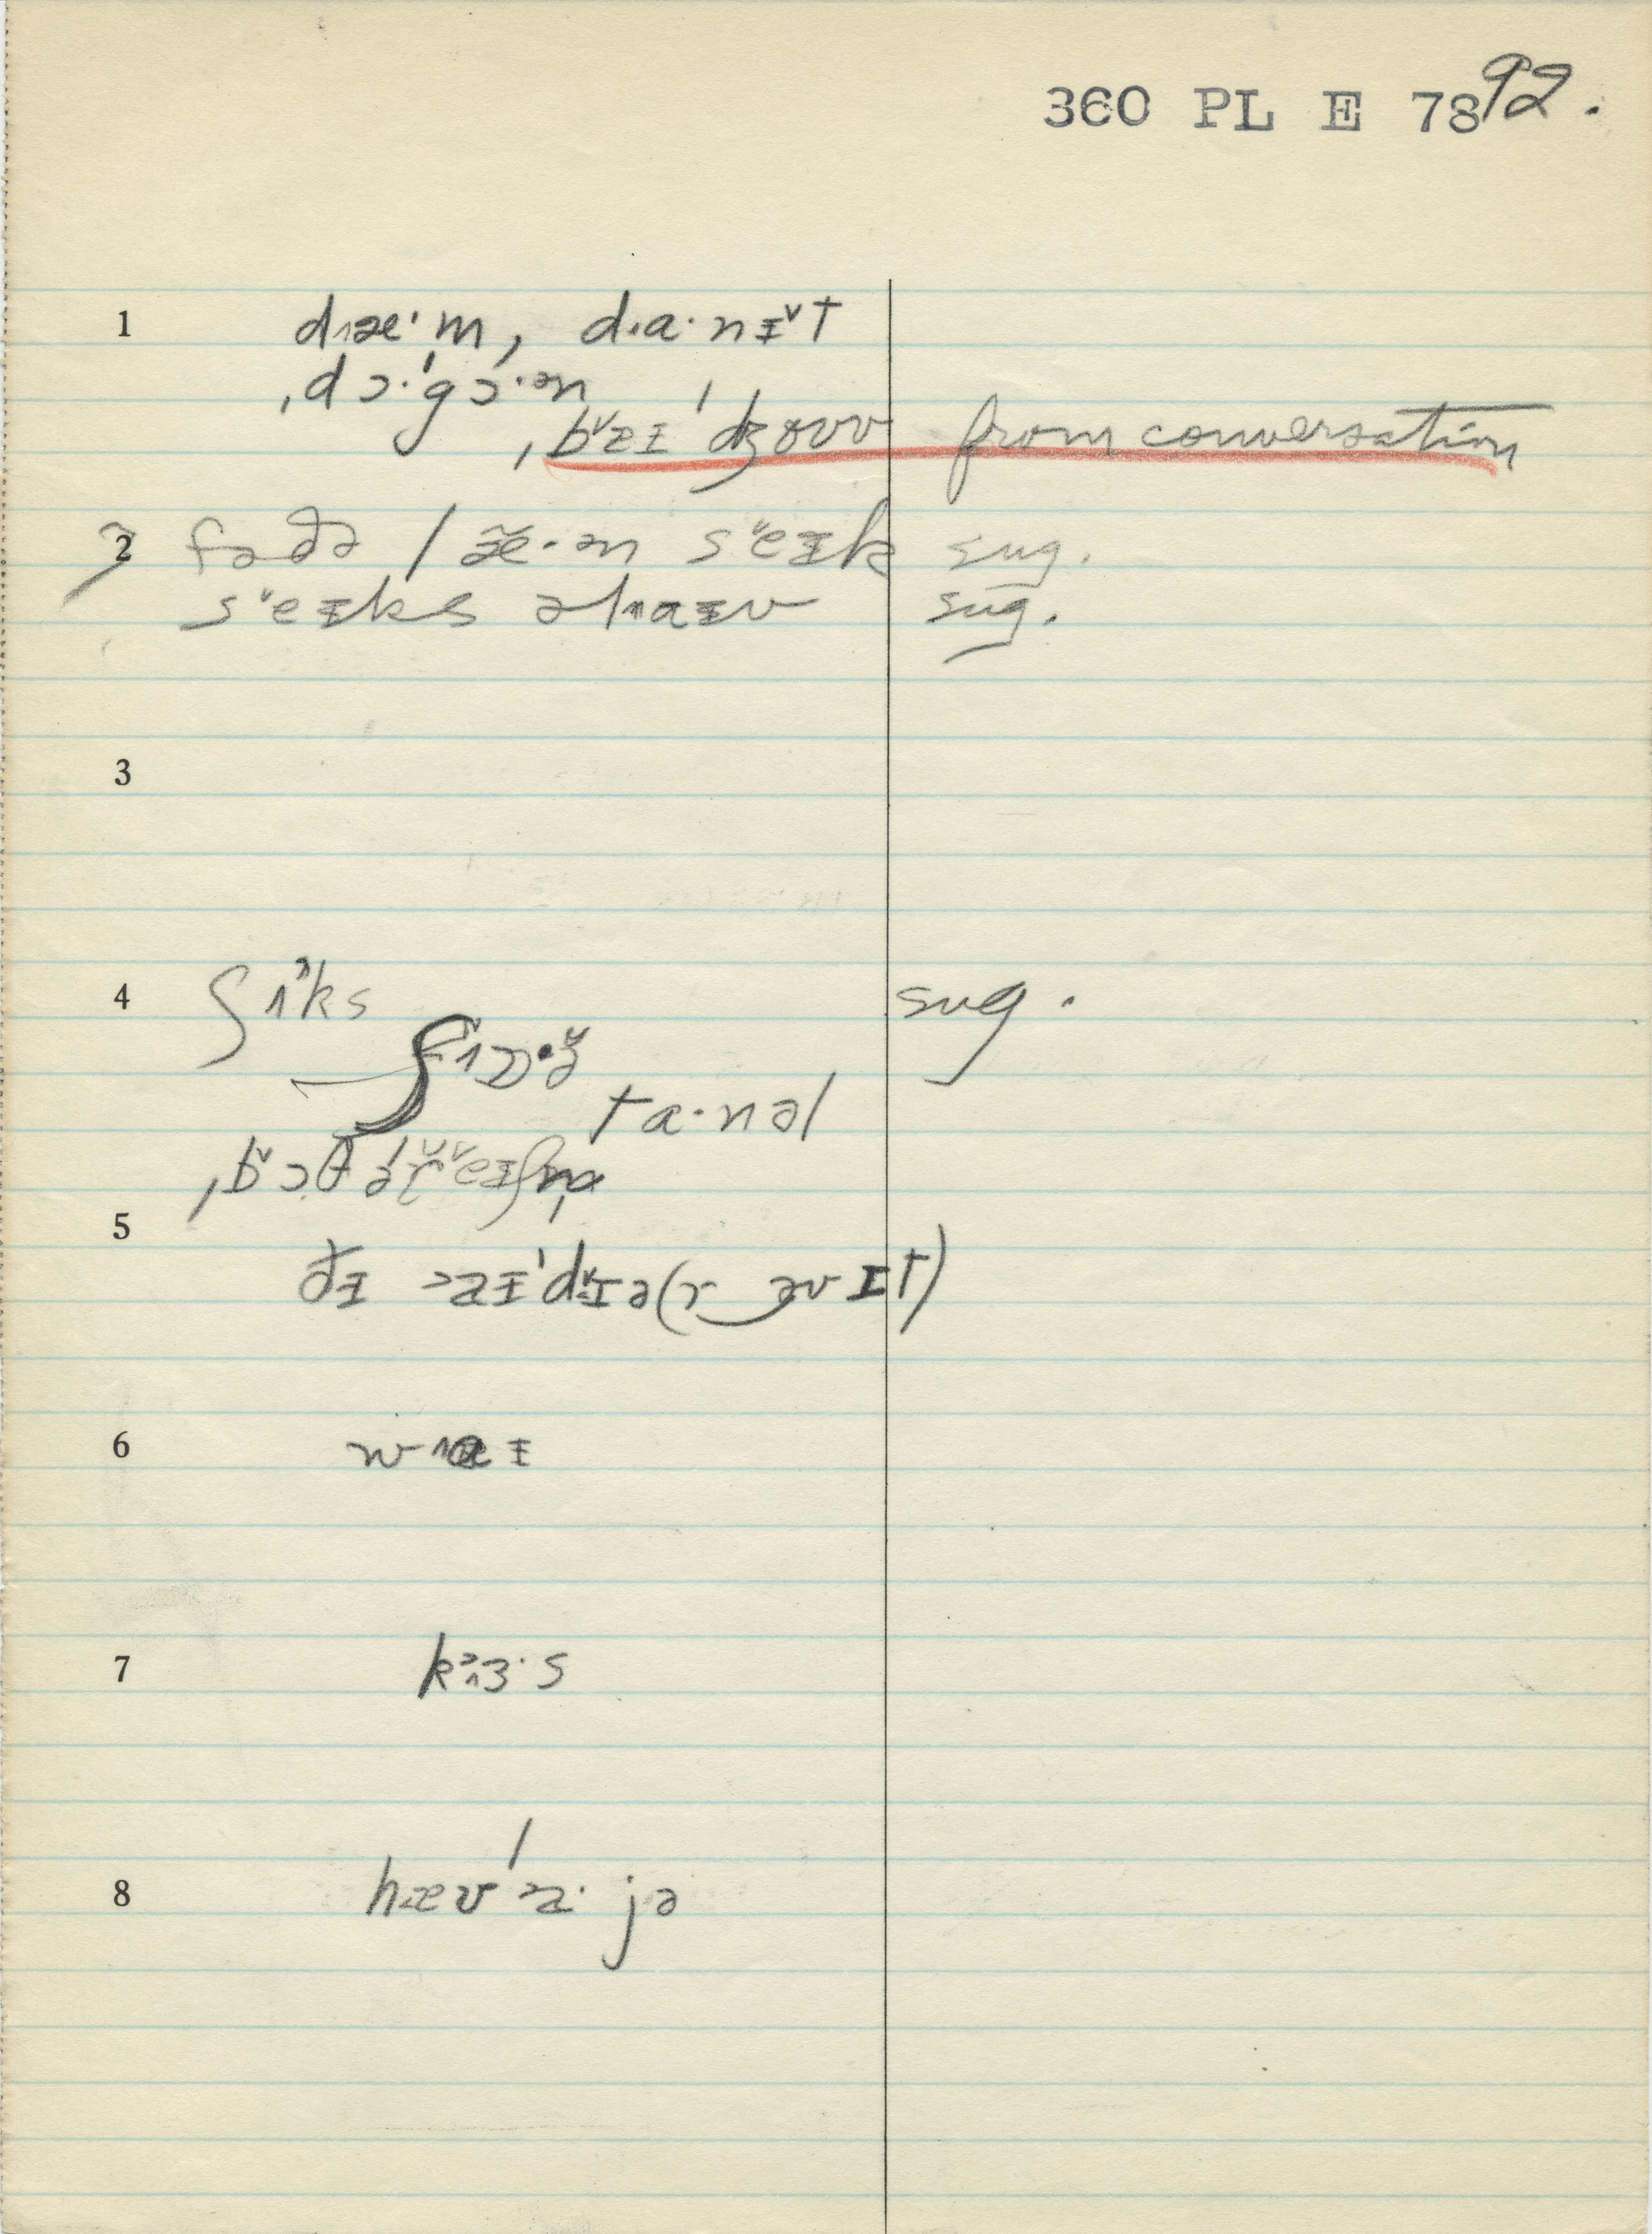 360 PL E 78 92.
1 dɹæ˔·m, d.ɑ·nɪ˅t
ˌdɔ·ˈgɔ·ən
ˌb˅aɪˈdʒoʊv from conversation
2 fəðə læ·ən s˅eɪk sug.
s˅eɪks əlɑɪv sug.
3
4 ʃ iks sug.
ʃɒ·ə̆
tɑ·nəl
ˌb˅ɔθəˈɾ˅eɪʃn̩
5
ðɪ aɪˈd˅ɪə(r əv ɪt)
6 wɑɪ
7 kɜ·s
8 hævˈa·jə